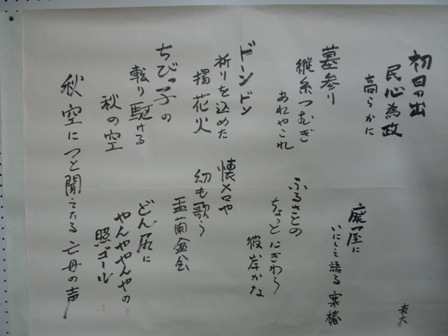 初日の出
民心為政
高らかに
廃屋に
いにしえ語る寒椿
墓参り
縦糸つむぎ
あれやこれ
ふるさとの
ちょっとにぎわう
彼岸かな
ドーンドン
祈りを込めた
揚花火
懐メロや
幼も歌う
盂蘭盆会
ちびっ子の
転り駆ける
秋の空
どん尻に
やんややんやの
照ゴール
秋空につと聞こえたる亡母の声